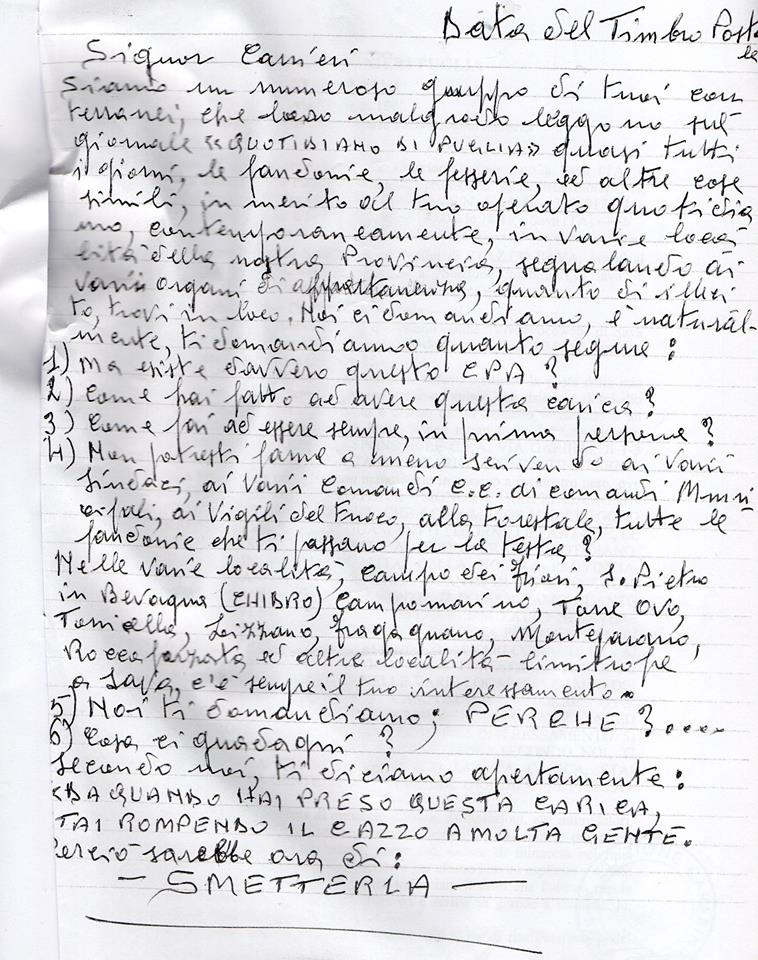 Data del Timbro Posta
le
Signor Carrieri
Siamo un numeroso gruppo di tuoi con
terranei, che loro malgrado leggono sul
giornale «QUOTIDIANO DI PUGLIA» quasi tutti
i giorni, le fandonie, le fesserie, ed altre cose
simili, in merito al tuo operato quotidia
no, contemporaneamente, in varie loca
lità della nostra Provincia, segnalando ai
vari organi di appartenenza, quanto di illeci
to, trovi in loco. Noi ci domandiamo, e natural-
mente, ti domandiamo quanto segue:
1) Ma esiste davvero questo EPA?
2) Come hai fatto ad avere questa carica?
3) Come fai ad essere sempre, in prima persona?
4) Non potresti farne a meno scrivendo ai vari
Sindaci, ai vari comandi C.C. ai comandi Muni
cipali, ai Vigili del Fuoco, alla Forestale, tutte le
fandonie che ti passano per la testa?
Nelle varie località, Campo dei Friari, S. Pietro
in Bevagna (CHIDRO) Campomarino, Torre Ovo,
Torricella, Lizzano, Fragagnano, Monteparano,
Roccaforzata ed altre località limitrofe
a Sava, c'è sempre il tuo interessamento..
5) Noi ti domandiamo; PERCHE?.....
6) Cosa ci guadagni?
Secondo noi, ti diciamo apertamente:
«DA QUANDO HAI PRESO QUESTA CARICA,
STAI ROMPENDO IL CAZZO A MOLTA GENTE.
Perciò sarebbe ora di:
- SMETTERLA -